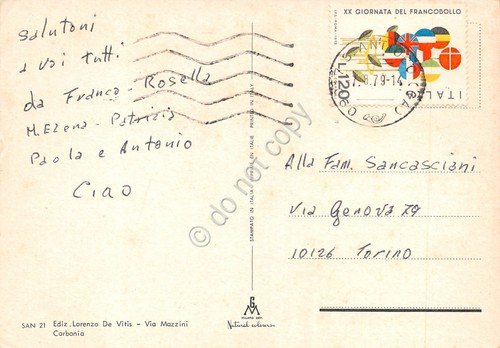 Salutoni
a voi tutti
da Franco - Rosella
M. Elena - Patrizia
Paola e Antonio
Ciao
XX GIORNATA DEL FRANCOBOLLO
ITALIA
S. ANTIOCO (CA)
.8.79-14
Alla Fam. Sancasciani
Via Genova 79
10126 Torino
STAMPATO IN ITALIA
PRINTED IN ITALY
SAN 21 Ediz. Lorenzo De Vitis - Via Mazzini
Carbonia
GM
Natural colorcrom
do not copy